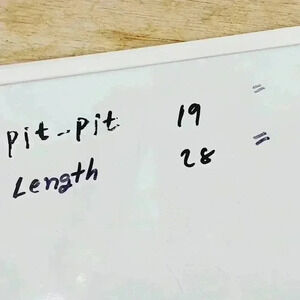 pit--pit 19 "
Length 28 "